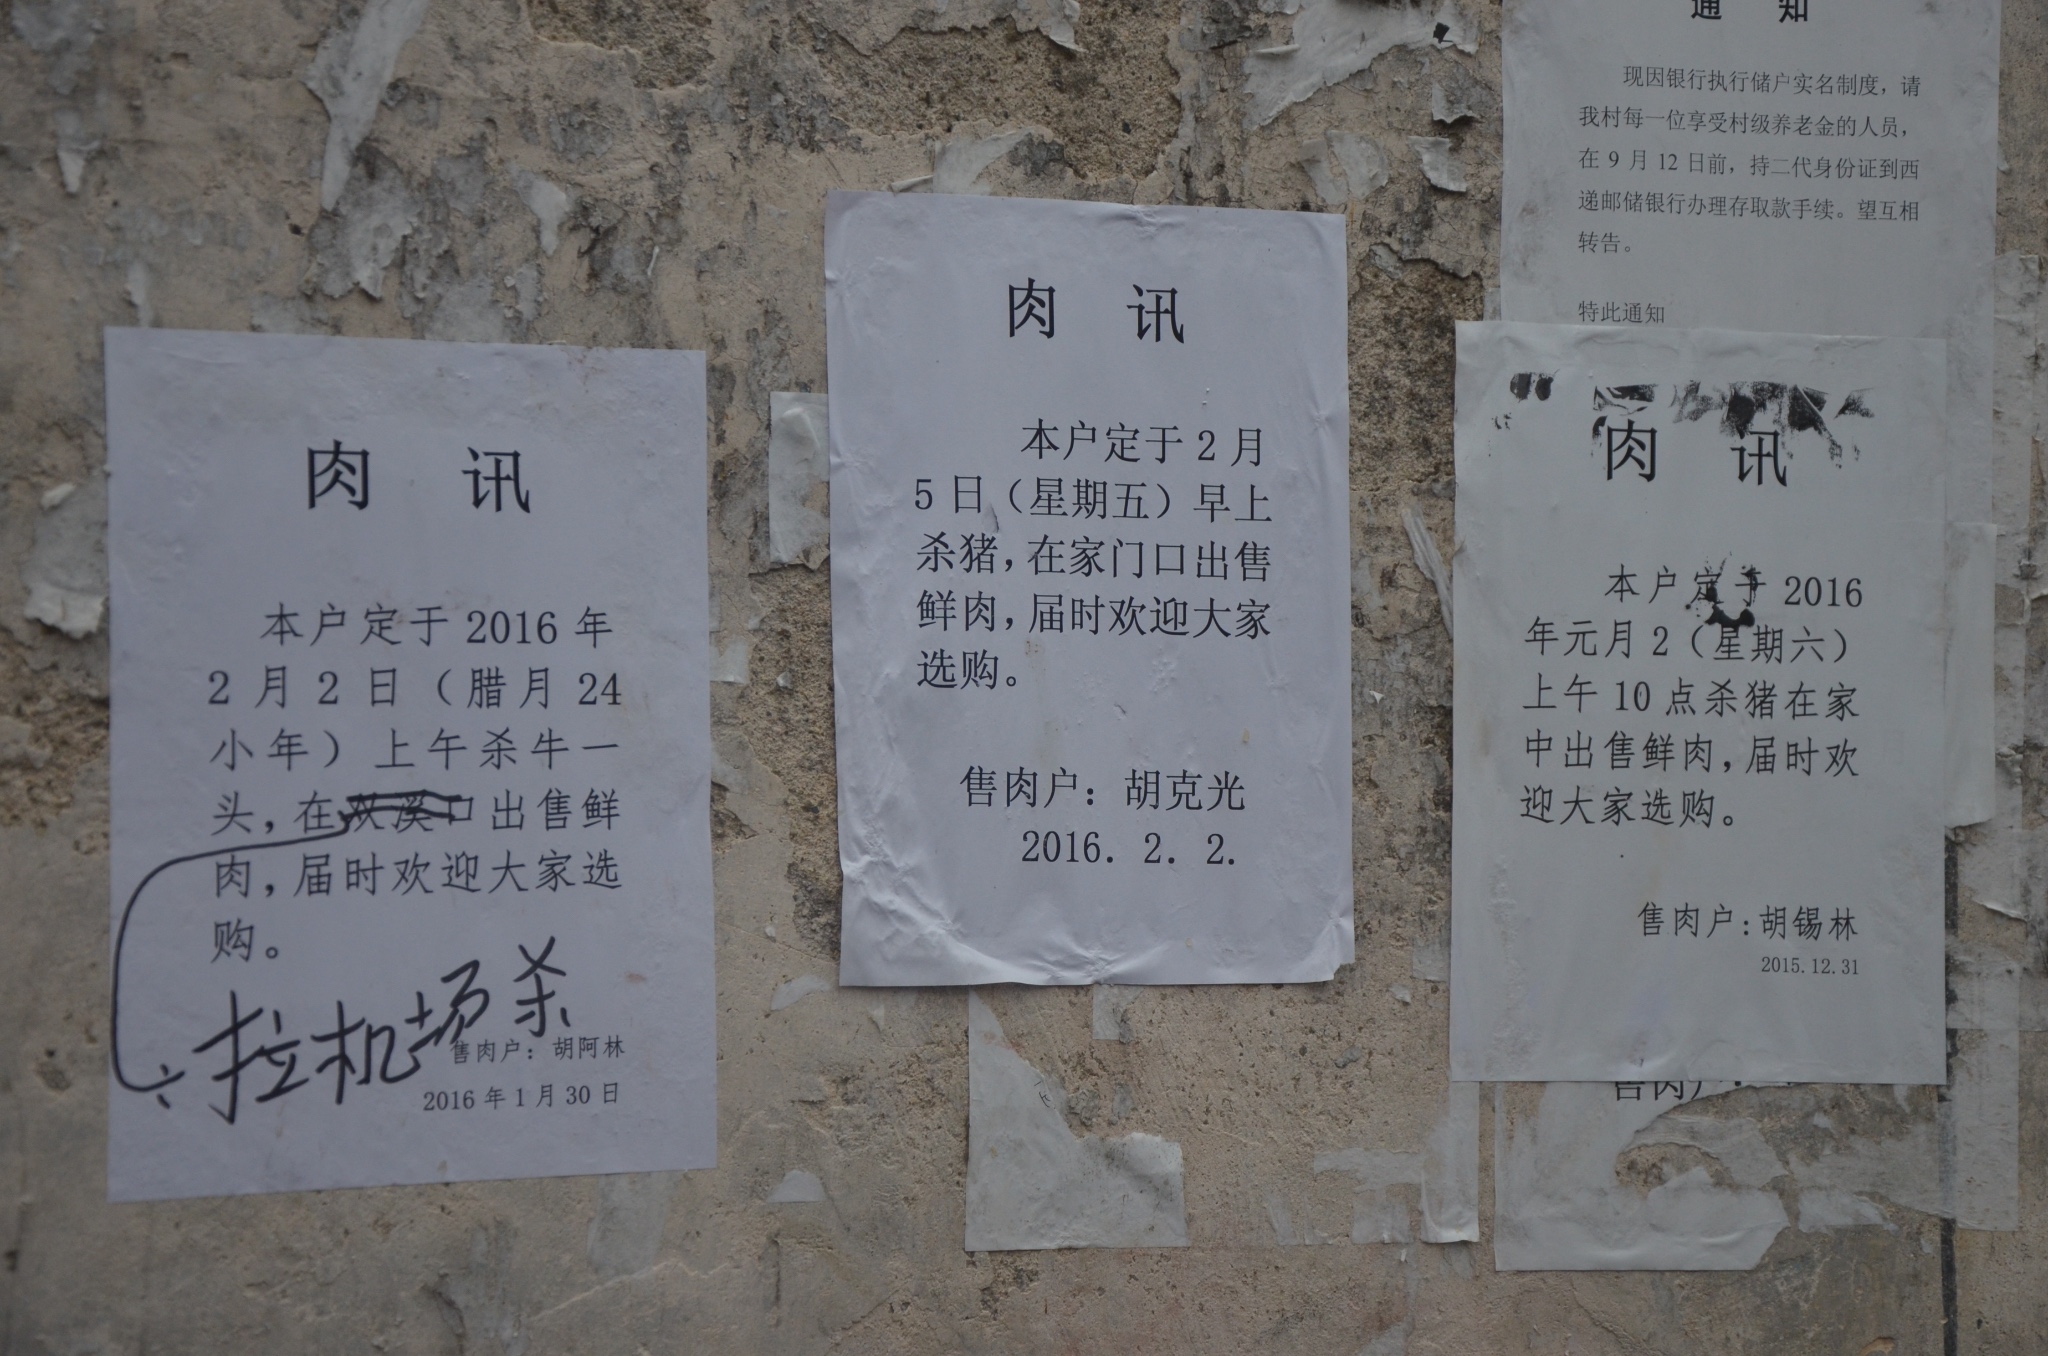 肉 讯
本户定于 2016 年
2 月 2 日（腊月 24
小年）上午杀牛一
头，在双溪口出售鲜
肉，届时欢迎大家选
购。
拉机场杀
售肉户：胡阿林
2016 年 1 月 30 日
肉 讯
本户定于 2 月
5 日（星期五）早上
杀猪，在家门口出售
鲜肉，届时欢迎大家
选购。
售肉户：胡克光
2016. 2. 2.
通 知
现因银行执行储户实名制度，请
我村每一位享受村级养老金的人员，
在 9 月 12 日前，持二代身份证到西
递邮储银行办理存取款手续。望互相
转告。
特此通知
肉 讯
本户定于 2016
年元月 2（星期六）
上午 10 点杀猪在家
中出售鲜肉，届时欢
迎大家选购。
售肉户：胡锡林
2015.12.31
售肉户：